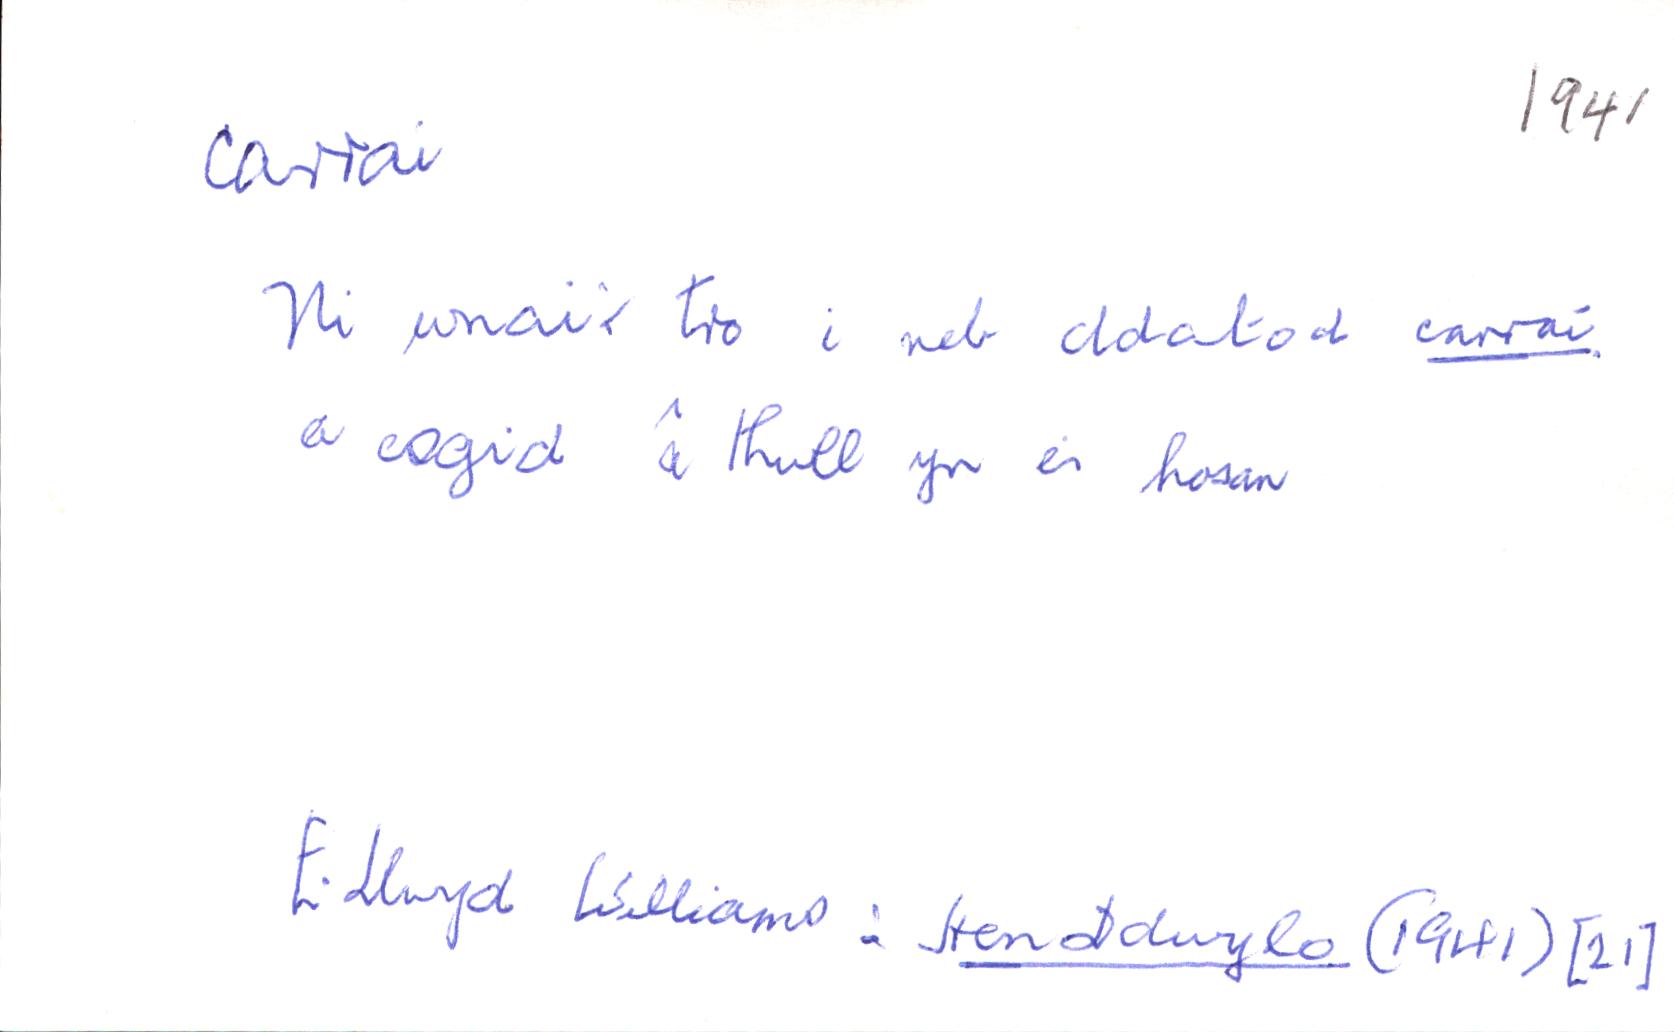 1941
Carrai
Ni wnaiff tro i neb ddatod carrai
a esgid â thwll yn ei hosan
E. Llwyd Williams : Hen Ddwylo (1941) [21]